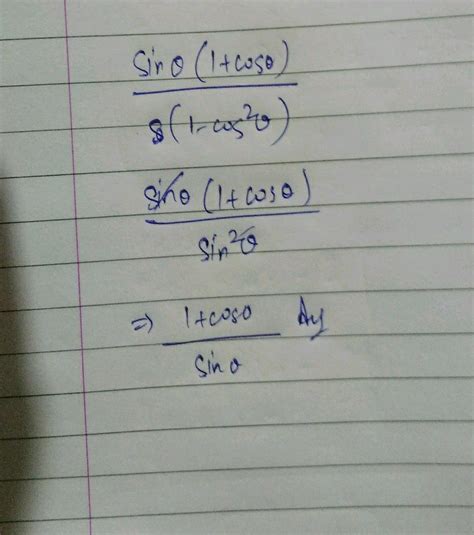 sinθ (1+cosθ)
(1-cos²θ)
sinθ (1+cosθ)
sin²θ
⇒ 1+cosθ
sinθ